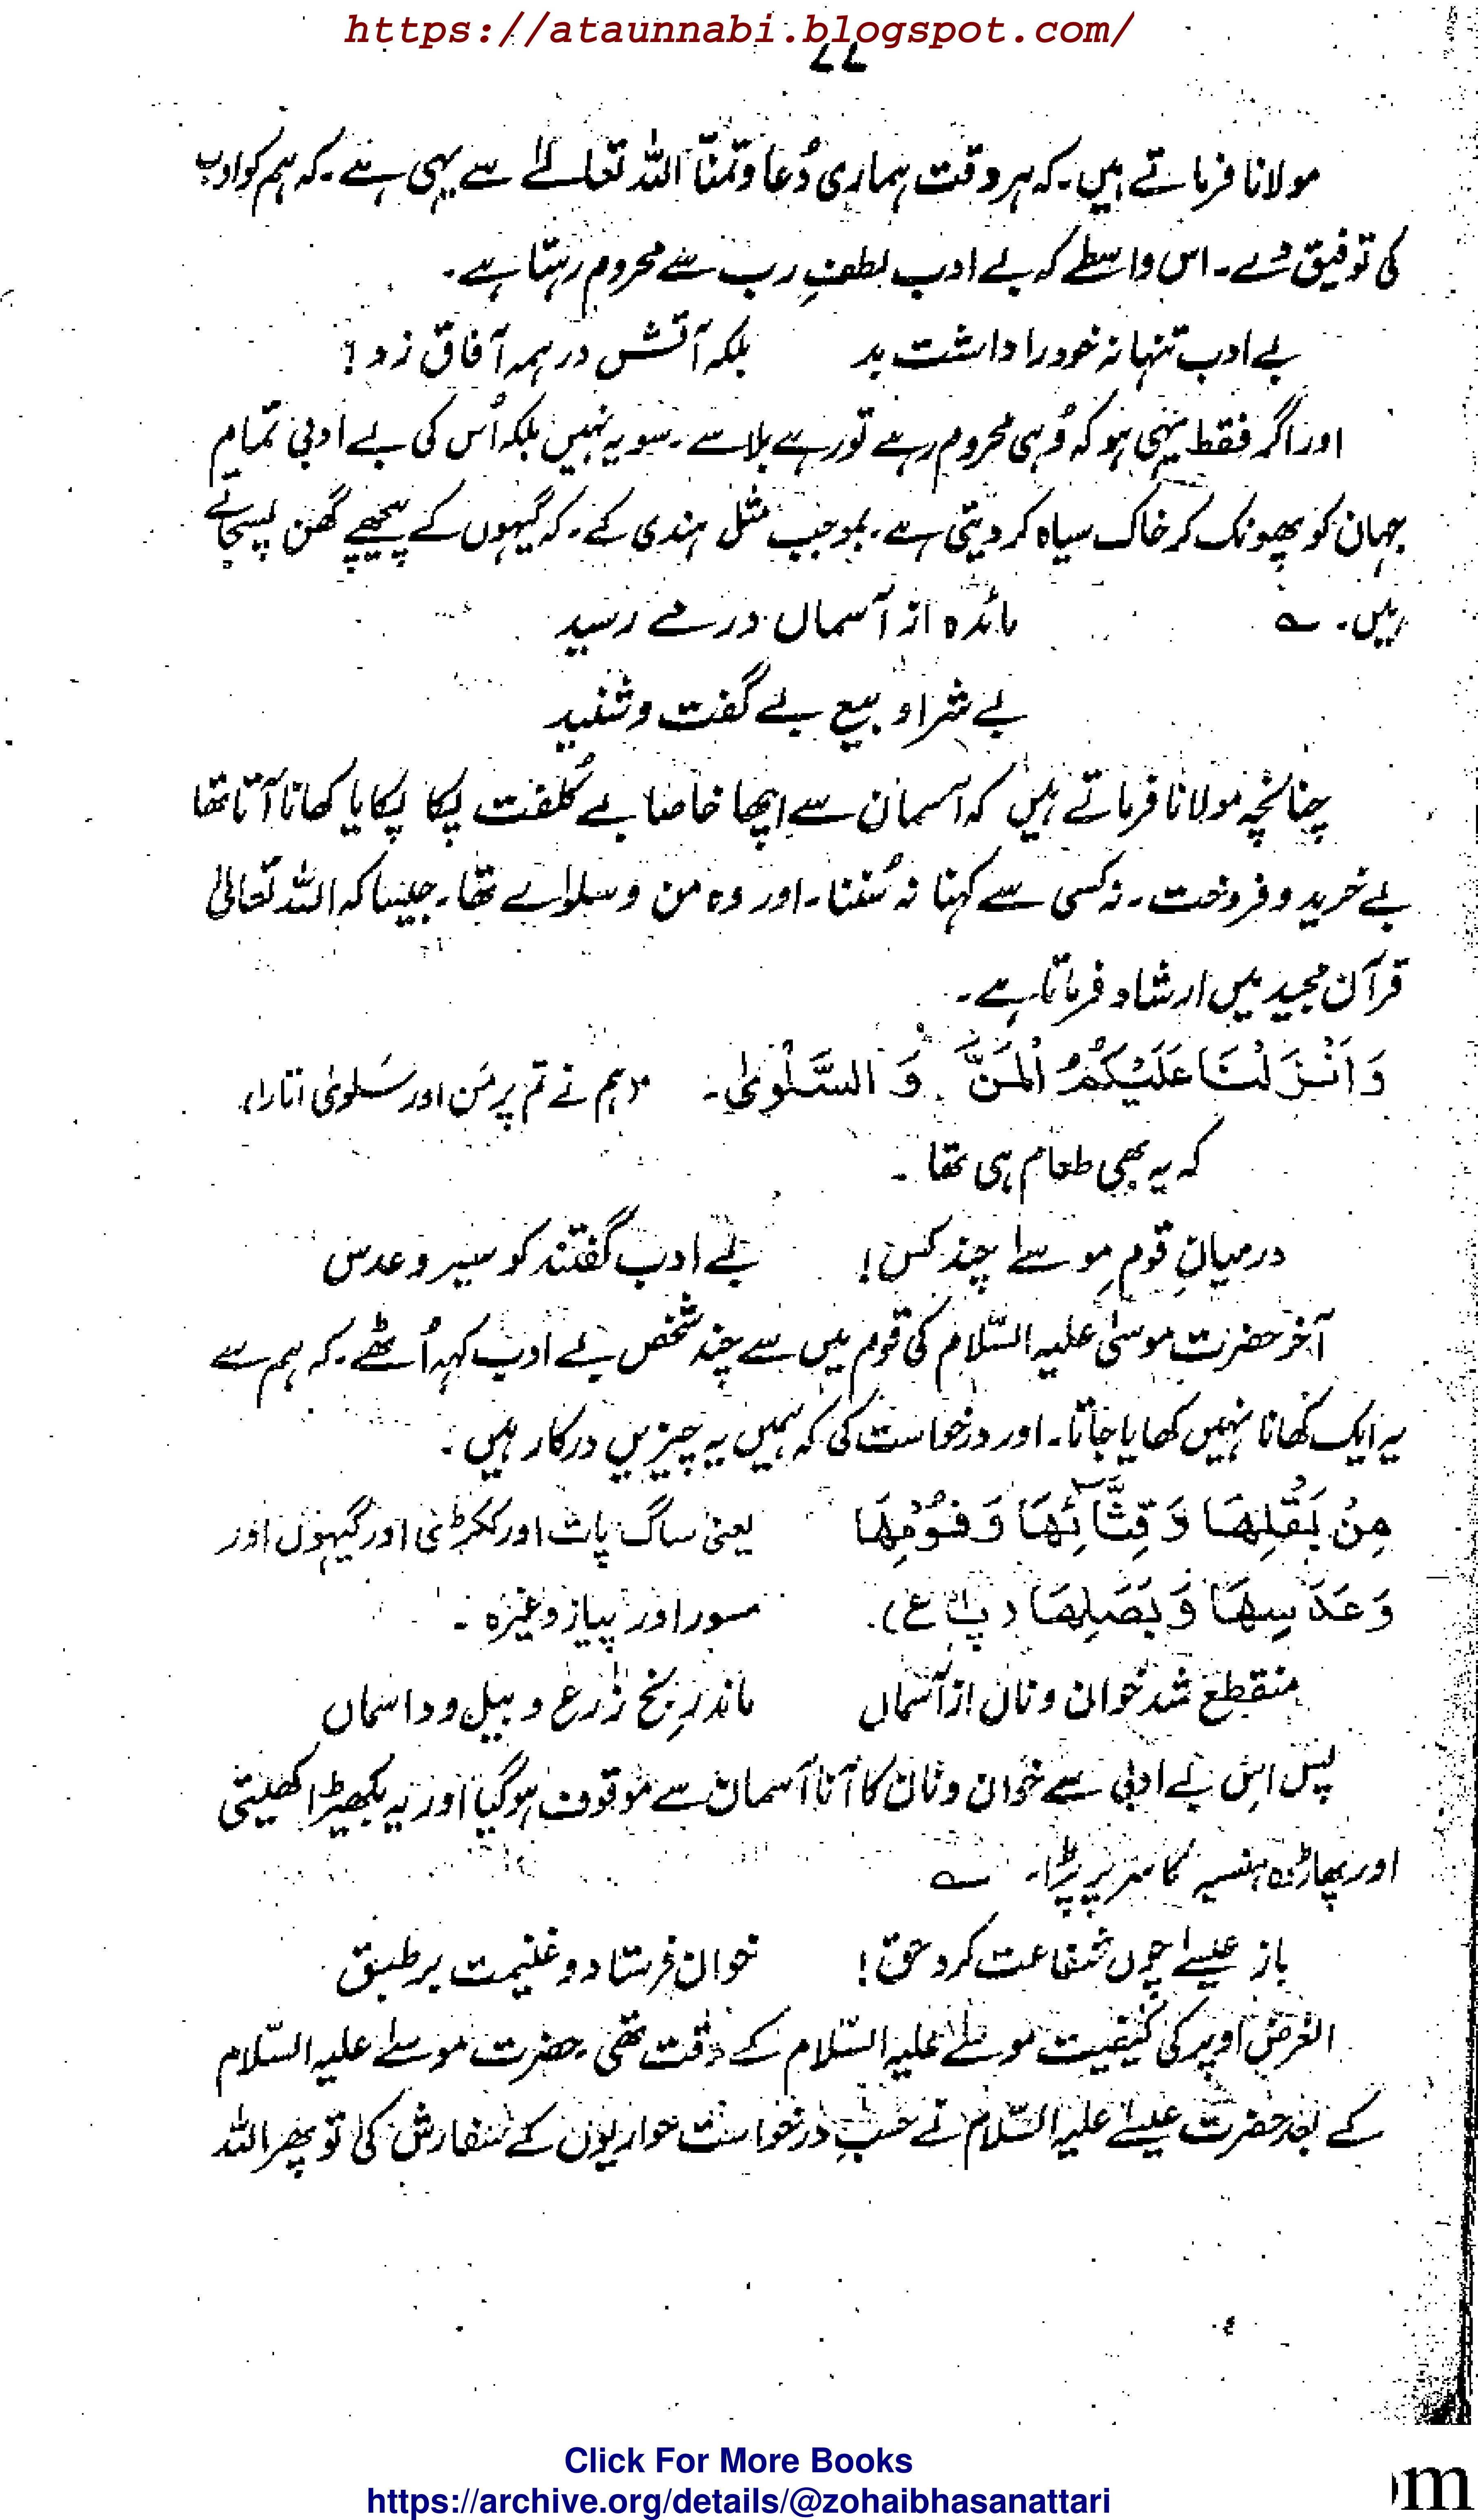 https://ataunnabi.blogspot.com/
۷۷
مولانا فرماتے ہیں۔ کہ ہر وقت ہماری دُعا و تمنّا اللہ تعالےٰ سے یہی ہے۔ کہ ہم کو ادب
کی توفیق دے۔ اس واسطے کہ بے ادب لطفِ رب سے محروم رہتا ہے۔
بے ادب تنہا نہ خود را داشت بد بلکہ آتش در ہمہ آفاق زد!
اور اگر فقط یہی ہو کہ وُہی محروم رہے تو رہے بلا سے۔ سو یہ نہیں بلکہ اُس کی بے ادبی تمام
جہان کو پھونک کر خاک سیاہ کر دیتی ہے۔ بموجب مثل ہندی کے۔ کہ گیہوں کے پیچھے گھن پس جاتے
ہیں۔ ؎ مائدہ از آسماں در مے رسید
بے شرا و بیع بے گفت و شنید
چنانچہ مولانا فرماتے ہیں کہ آسمان سے اچھا خاصا بے کُلفت پکا پکایا کھانا آتا تھا
بے خرید و فروخت۔ نہ کسی سے کہنا نہ سُننا۔ اور وہ من و سلواے تھا۔ جیسا کہ اللہ تعالیٰ
قرآن مجید میں ارشاد فرماتا ہے۔
وَاَنْزَلْنَا عَلَيْكُمُ الْمَنَّ وَ السَّلْوٰى۔ (ہم نے تم پر مَن اور سَلویٰ اتارا)
کہ یہ بھی طعام ہی تھا ۔
درمیانِ قومِ موسےٰ چند کس! بے ادب گفتند کو سیر و عدس
آخر حضرت موسیٰ علیہ السّلام کی قوم میں سے چند شخص بے ادب کہہ اُٹھے۔ کہ ہم سے
یہ ایک کھانا نہیں کھایا جاتا۔ اور درخواست کی کہ ہمیں یہ چیزیں درکار ہیں ۔
مِنْ بَقْلِهَا وَ قِثَّآئِهَا وَ فُوْمِهَا یعنی ساگ پات اور ککڑی اور گیہوں اور
وَ عَدَسِهَا وَ بَصَلِهَا (پ ع)۔ مسور اور پیاز وغیرہ ۔
منقطع شد خوان و نان از آسماں ماند رنج زرع و بیل و داسماں
پس اس بے ادبی سے خوان و نان کا آنا آسمان سے موقوف ہو گیا اور یہ بکھیڑا کھیتی
اور پھاوڑہ ہنسیہ کا سر پر پڑا۔ ؎
باز عیسےٰ چوں شفاعت کرد حق! خوان فرستاد و غنیمت بر طبق
الغرض اوپر کی کیفیت موسےٰ علیہ السّلام کے وقت تھی۔ حضرت موسےٰ علیہ السّلام
کے بعد حضرت عیسےٰ علیہ السّلام نے حسبِ درخواست حواریوں کے سفارش کی تو پھر اللہ
Click For More Books
https://archive.org/details/@zohaibhasanattari